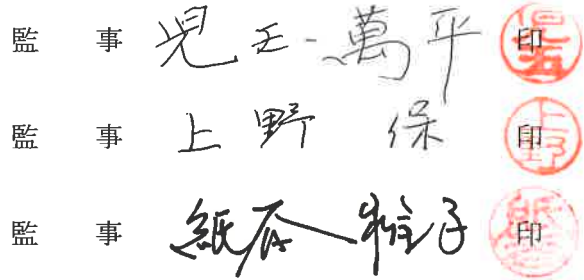 監事 児玉 萬平 印
監事 上野 保 印
監事 紙谷 子 印